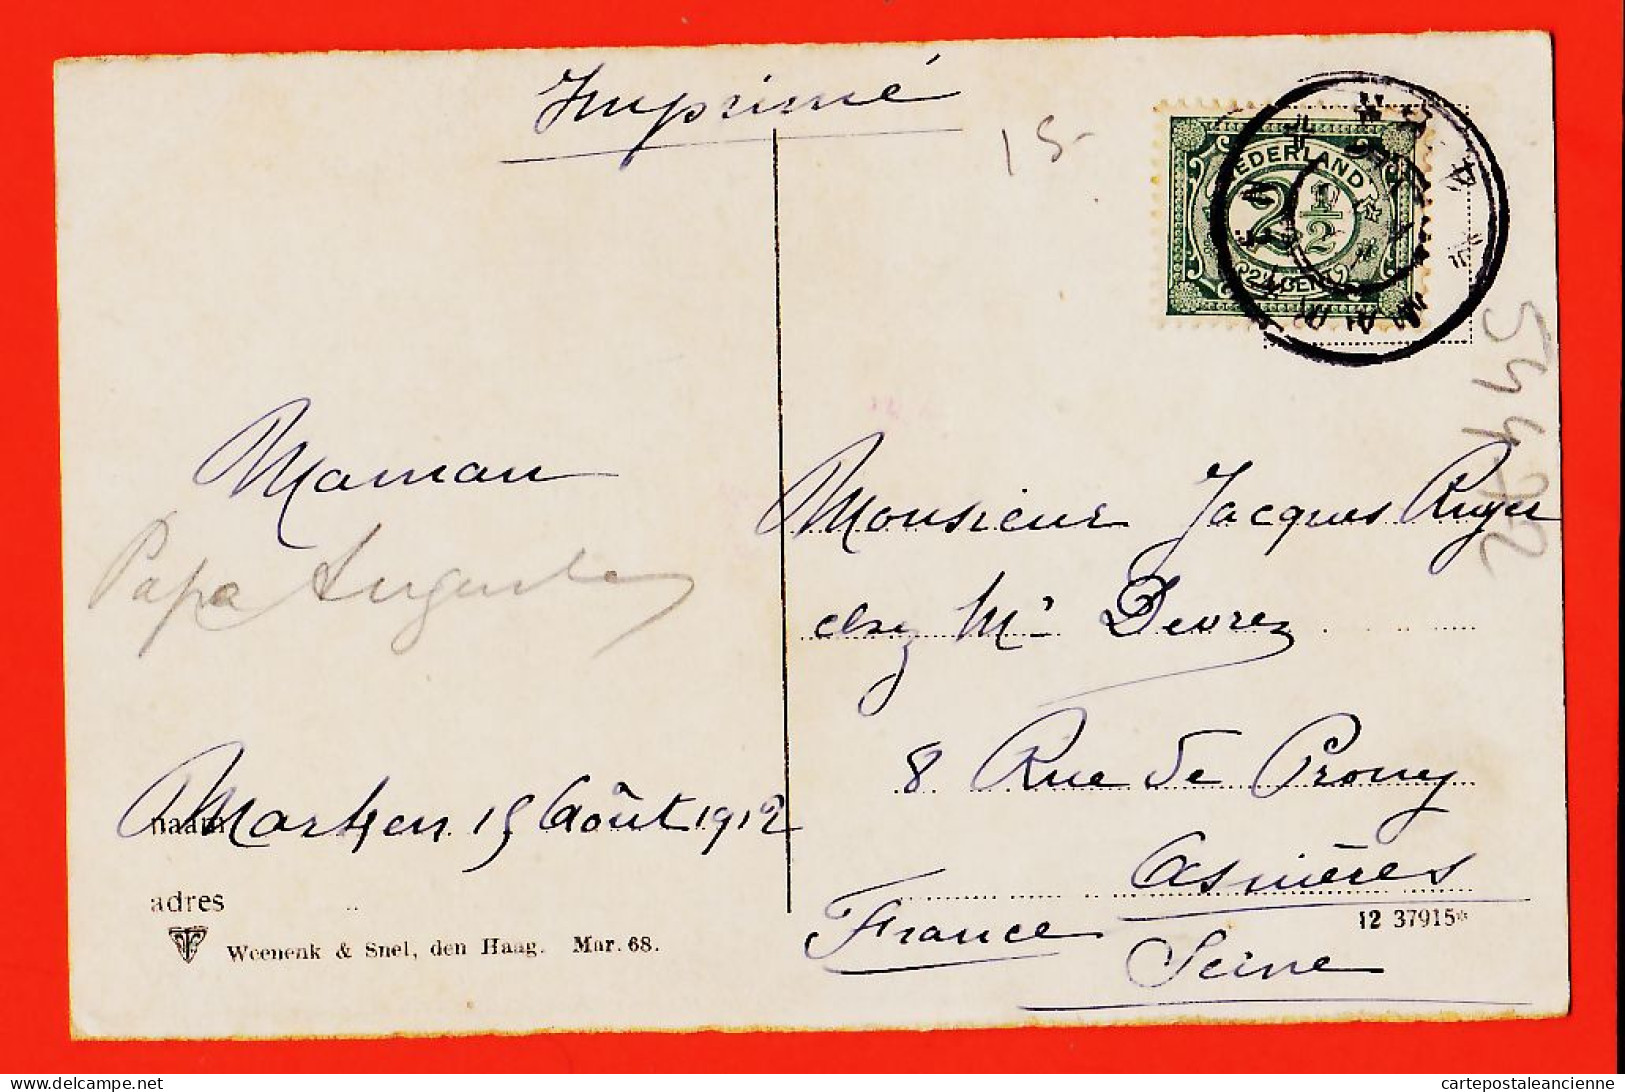 Imprimé
15-
NEDERLAND
2 1/2
2½ CENT
MARKEN
54472
Maman
Papa Auguste
Marken 15 Août 1912
naam
adres
Weenenk & Snel, den Haag. Mar. 68.
Monsieur Jacques
chez Mr Devrez
8 Rue de Prony
Asnières
France
12 37915*
Seine
cartepostaleancienne.com